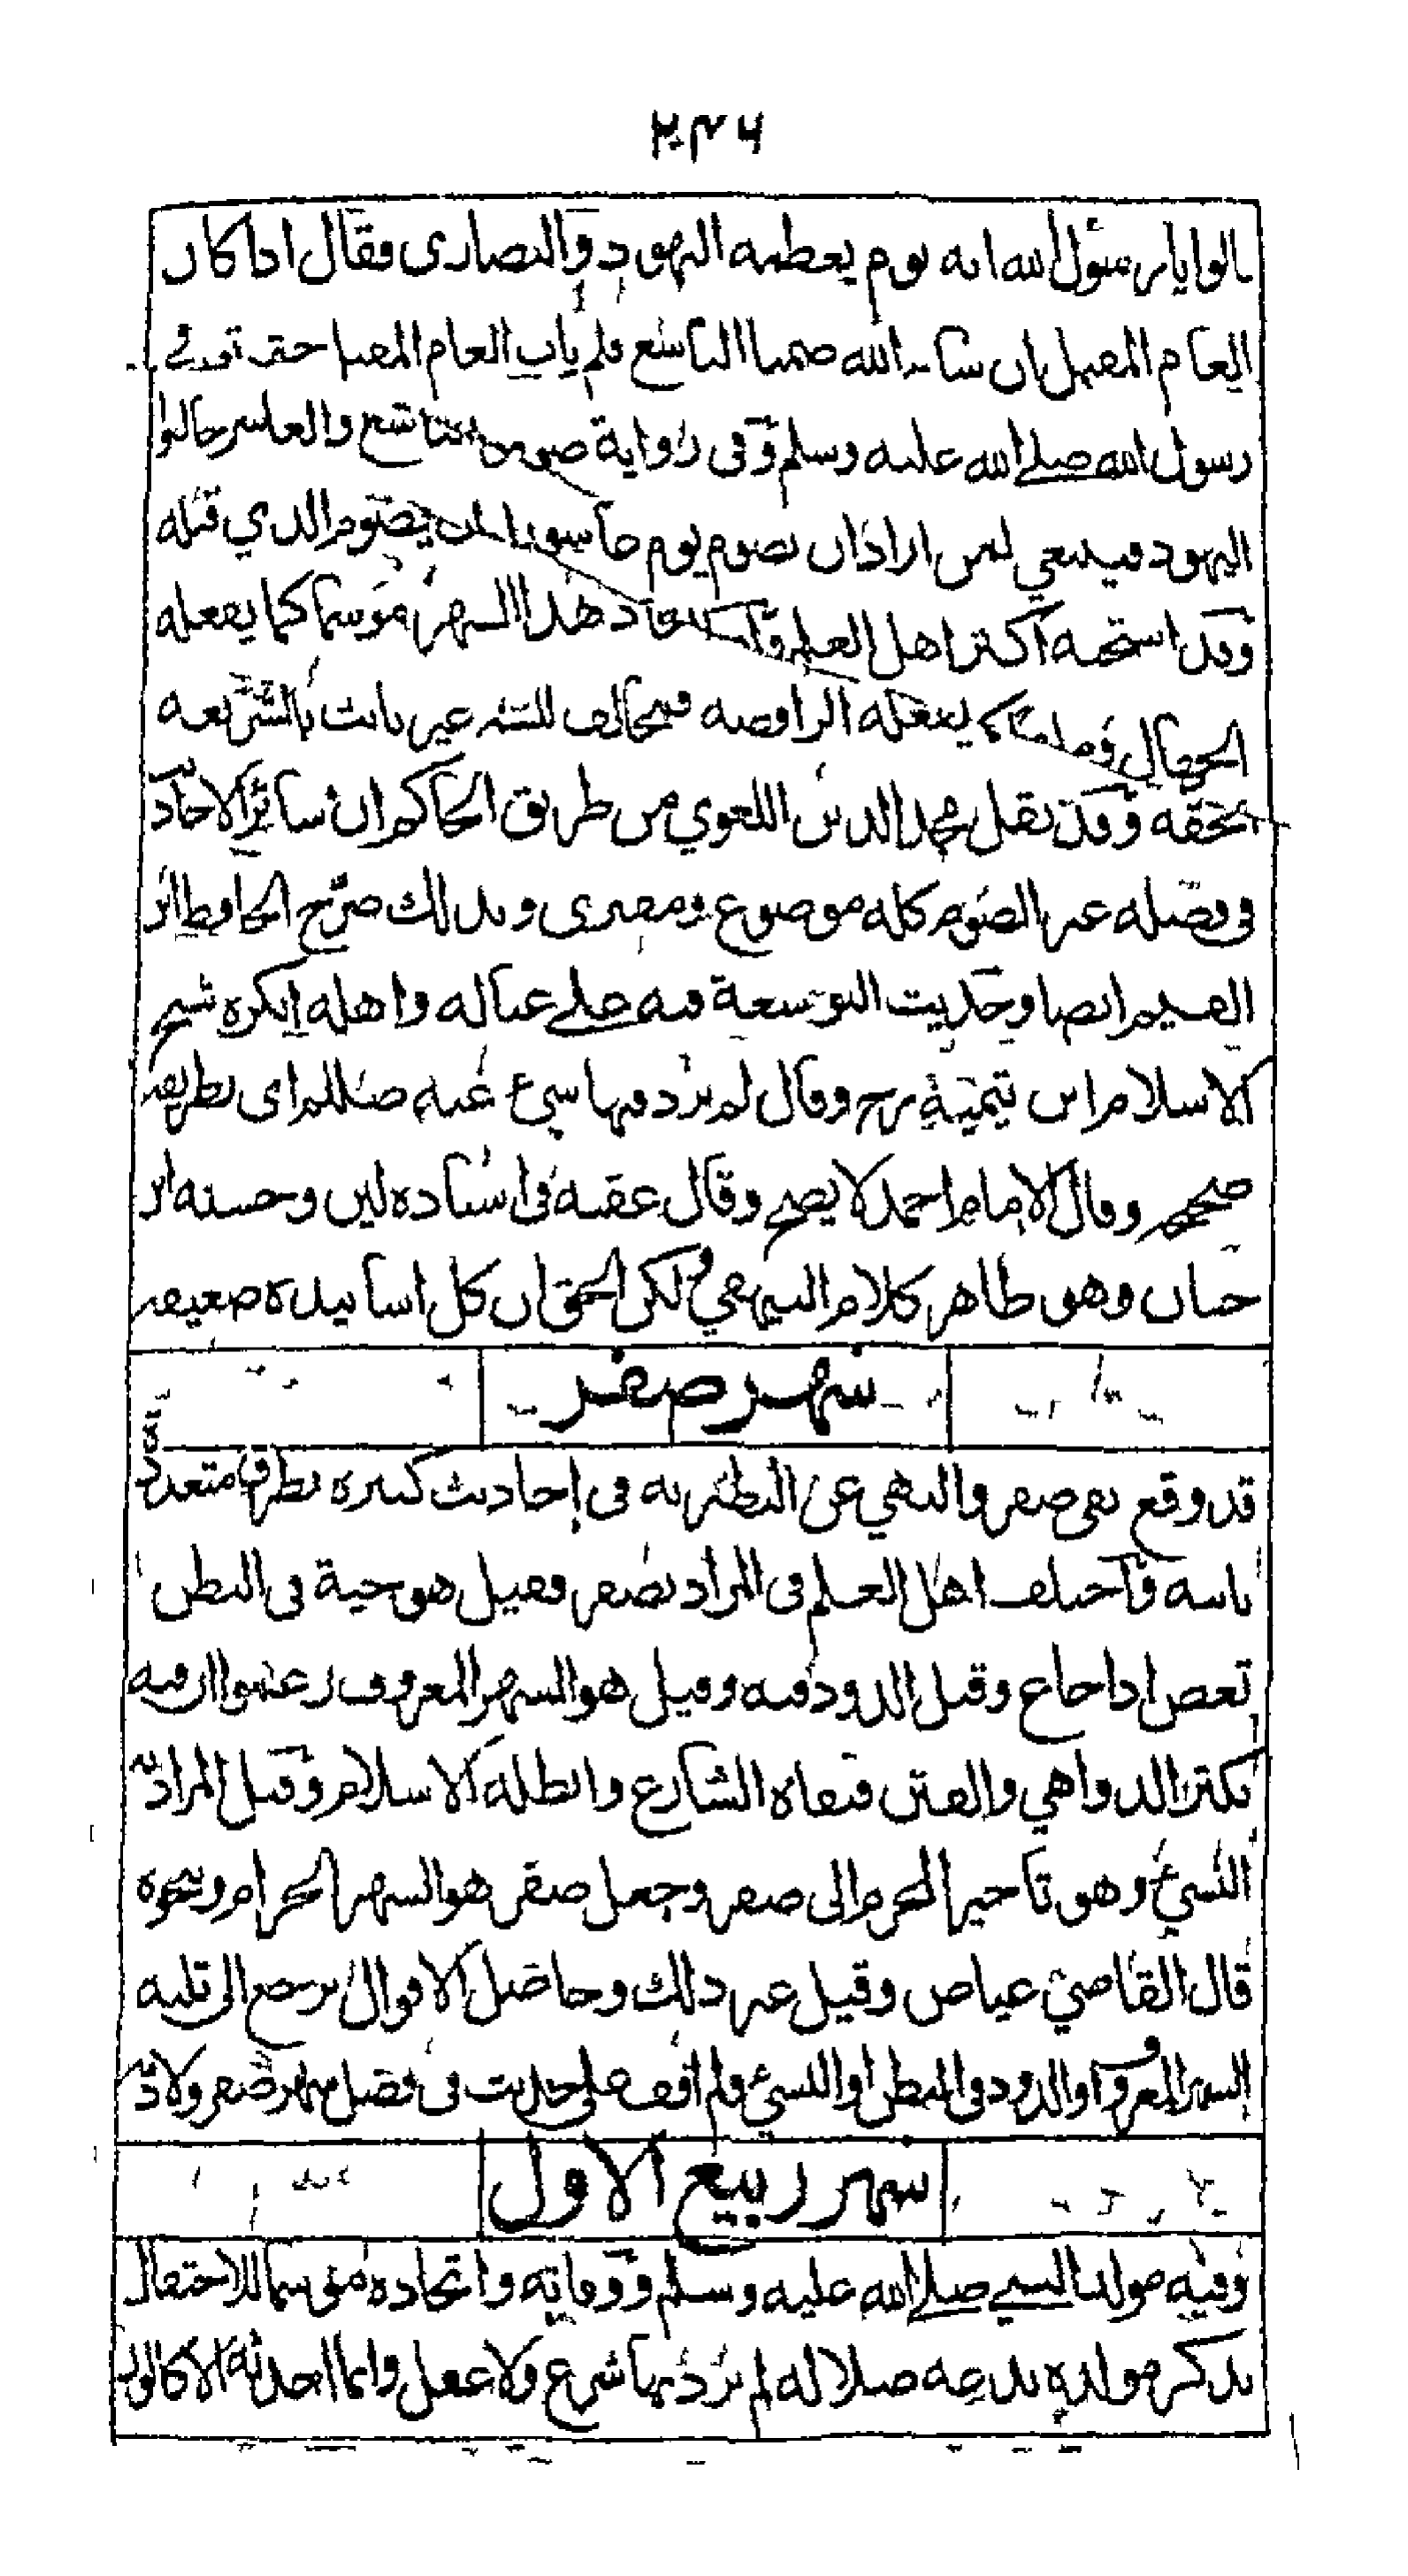 ٢٣٦
قالوا يا رسول الله انه يوم يعظمه اليهود والنصارى فقال اذا كان
العام المقبل ان شاء الله صمنا التاسع فلم يات العام المقبل حتى توفي
رسول الله صلى الله عليه وسلم وفي رواية صوموا التاسع والعاشر خالفوا
اليهود فينبغي لمن اراد ان يصوم يوم عاشوراء ان يصوم الذي قبله
وقد استحبه اكثر اهل العلم واتخاذ هذا الشهر موسما كما يفعله
الجهال يفعله الرافضه فمخالف للسنة غير ثابت بالشريعه
الحقه وقد نقل مجد الدين اللغوي من طريق الحاكم ان سائر الاحاد
في فضله غير الصوم كله موضوع ومفترى وبذلك صرح الحافظ ابن
القيم ايضا وحديث التوسعة فيه على عياله واهله انكره شيخ
الاسلام ابن تيمية رح وقال لم يرد فيها شيء عنه صللم اي بطريق
صحيح وقال الامام احمد لا يصح وقال عقبه في اسناده لين وحسنه ابن
حبان وهو ظاهر كلام البيهقي ولكن الحق ان كل اسانيده ضعيفه
شهر صفر
قد وقع نفي صفر والنهي عن التطير به في احاديث كثيره بطرق متعددة
ثابته واختلف اهل العلم في المراد بصفر فقيل هو حية في البطن
تعض اذا جاع وقيل الدود فيه وقيل هو الشهر المعروف زعموا ان فيه
تكثر الدواهي والفتن فنفاه الشارع وابطله الاسلام وقيل المراد به
النسيئ وهو تاخير المحرم الى صفر وجعل صفر هو الشهر الحرام ونحوه
قال القاضي عياض وقيل غير ذلك وحاصل الاقوال يرجع الى ثلثه
الشهر المعروف او الدود في البطن او النسيئ ولم اقف على حديث في فضل شهر صفر ولا ذمه
شهر ربيع الاول
وفيه مولد النبي صلى الله عليه وسلم ووفاته واتخاذه موسما للاحتفال
بذكر مولده بدعه ضلاله لم يرد بها شرع ولا عقل وانما احدثه